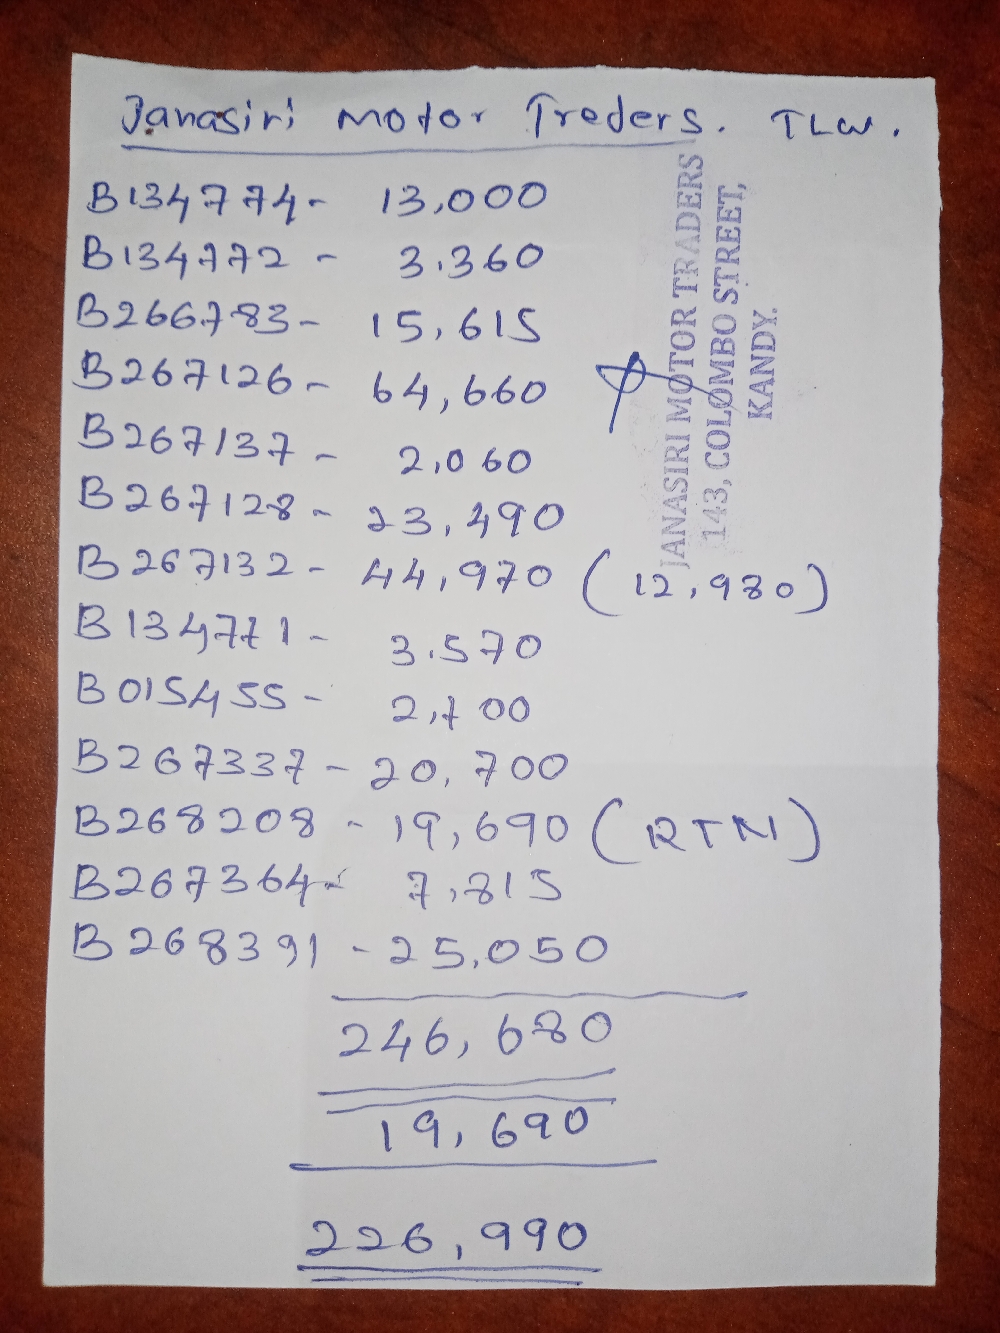 Janasiri Motor Treders. TLW.
B134774- 13,000
B134772 - 3.360
B266783- 15,615
B267126- 64,660
B267137 - 2,060
B267128- 23,490
B267132- 44,970 (12,980)
B134771- 3.570
B015455- 2,700
B267337- 20,700
B268208 - 19,690 (RTN)
B267364- 7,815
B268391 - 25,050
246,680
19,690
226,990
JANASIRI MOTOR TRADERS
143, COLOMBO STREET,
KANDY.